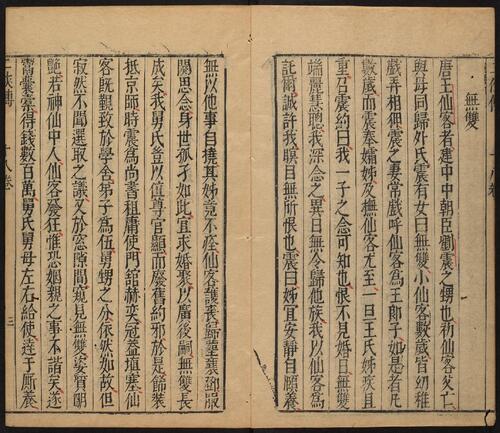 無雙
唐王仙客者建中中朝臣劉震之甥也初仙客父亡
與母同歸外氏震有女曰無雙小仙客數歲皆幼稚
戲弄相狎震之妻常戲呼仙客為王郎子如是者凡
數歲而震奉孀姊及撫仙客尤至一旦王氏姊疾且
重召震約曰我一子念之可知也恨不見婚日無雙
端麗慧聰我深念之異日無令歸他族我以仙客為
託爾誠許我瞑目無所恨也震曰姊宜安靜自頤養
無以他事自撓其姊竟不痊仙客護喪歸葬襄鄧服
闋思念身世孤孑如此宜求婚娶以廣後嗣無雙長
成矣我舅氏豈以位尊官顯而廢舊約邪於是飾裝
抵京師時震為尚書租庸使門館赫奕冠蓋填塞仙
客既覲致於學舍弟子為伍舅甥之分依然如故但
寂然不聞選取之議又於窗隙間窺見無雙姿質明
艷若神仙中人仙客發狂惟恐姻親之事不諧矣遂
鬻囊橐得錢數百萬舅氏舅母左右給使達于廝養
八卷
三